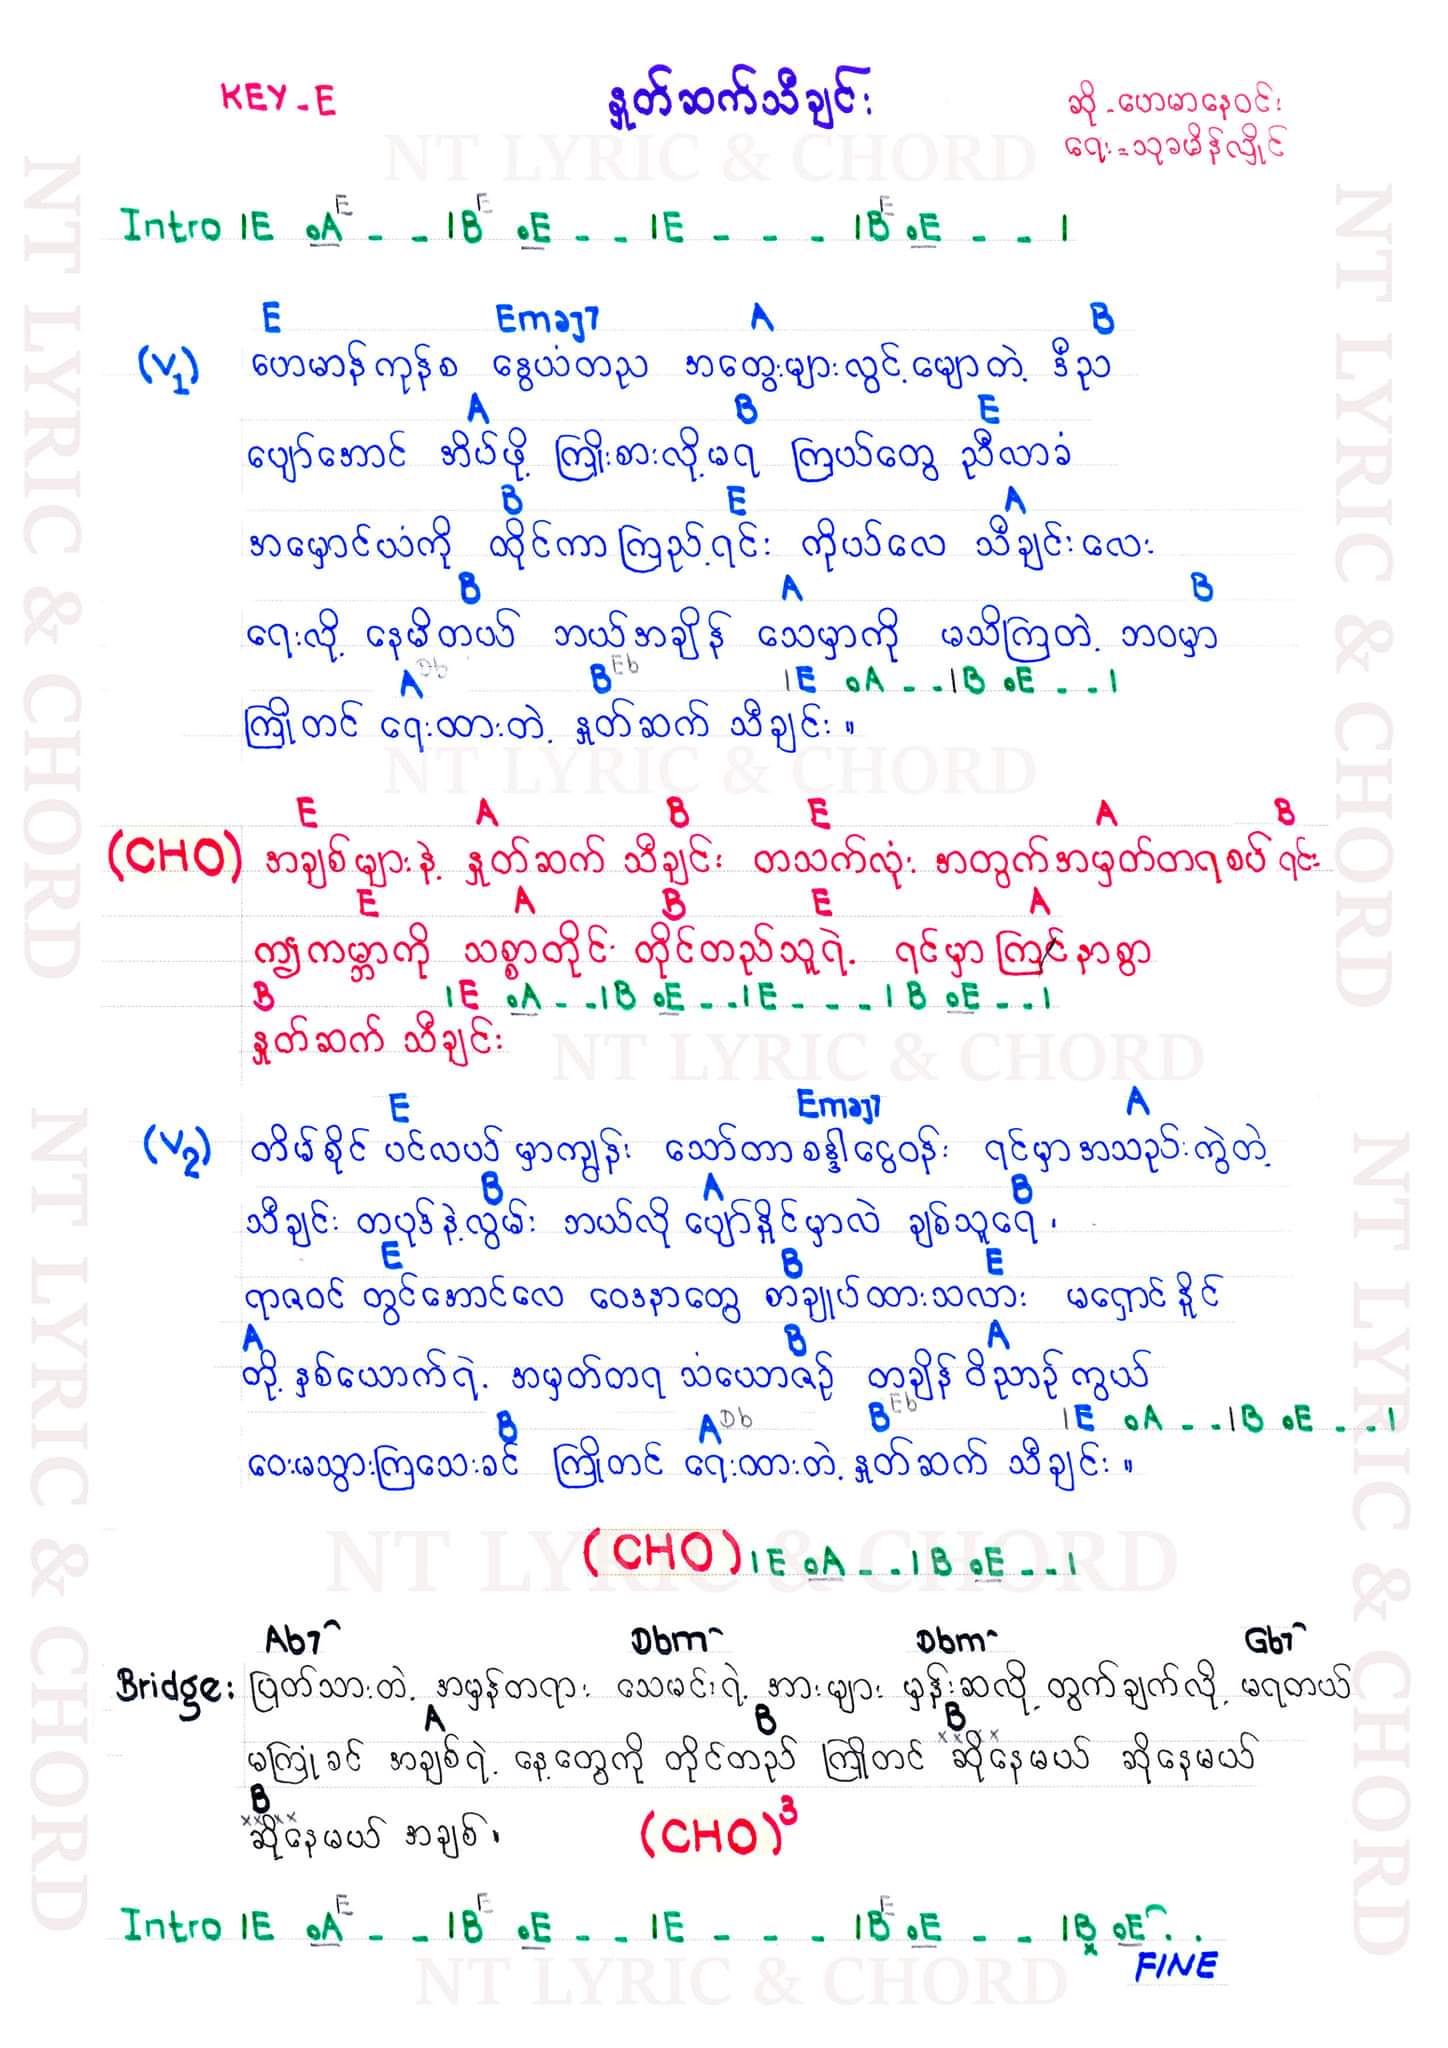 KEY - E
နှုတ်ဆက်သီချင်း
ဆို - ဟေမာနေဝင်း
ရေး = သုခမိန်လှိုင်
NT LYRIC & CHORD
Intro |E ₀A ᴱ - - |B ᴱ ₀E - - |E - - - |B ᴱ ₀E - - |
E Emaj7 A B
(V1) ဟေမာန်ကုန်စ နွေယံတည အတွေးများလွင့်မျောတဲ့ ဒီည
A B E
ပျော်အောင် အိပ်ဖို့ ကြိုးစားလို့မရ ကြယ်တွေ ညီလာခံ
B E A
အမှောင်ယံကို ထိုင်ကာကြည့်ရင်း ကိုယ်လေ သီချင်းလေး
B A B
ရေးလို့ နေမိတယ် ဘယ်အချိန် သေမှာကို မသိကြတဲ့ ဘဝမှာ
A Db B Eb |E ₀A - - |B ₀E - - |
ကြိုတင် ရေးထားတဲ့ နှုတ်ဆက် သီချင်း ။
NT LYRIC & CHORD
E A B E A B
(CHO) အချစ်များနဲ့ နှုတ်ဆက် သီချင်း တသက်လုံး အတွက်အမှတ်တရစပ်ရင်း
E A B E A
ဤကမ္ဘာကို သစ္စာတိုင်း တိုင်တည်သူရဲ့ ရင်မှာ ကြင်နာစွာ
B |E ₀A - - |B ₀E - - |E - - - |B ₀E - - |
နှုတ်ဆက် သီချင်း
NT LYRIC & CHORD
E Emaj7 A
(V2) တိမ်စိုင် ပင်လယ် မှာကျွန်း သော်တာစန္ဒါငွေဝန်း ရင်မှာအသည်းကွဲတဲ့
B A B
သီချင်း တပုဒ်နဲ့လွမ်း ဘယ်လို ပျော်နိုင်မှာလဲ ချစ်သူရေ ၊
E B E
ရာဇဝင် တွင်အောင်လေ ဝေဒနာတွေ စာချုပ်ထားသလား မရှောင်နိုင်
A B A
တို့နှစ်ယောက်ရဲ့ အမှတ်တရ သံယောဇဉ် တချိန် ဝိညာဉ်ကွယ်
B A Db B Eb |E ₀A - - |B ₀E - - |
ဝေးမသွားကြသေးခင် ကြိုတင် ရေးထားတဲ့ နှုတ်ဆက် သီချင်း ။
NT LYRIC & CHORD
(CHO) |E ₀A - - |B ₀E - - |
Ab7 Dbm Dbm Gb7
Bridge: ပြတ်သားတဲ့ အမှန်တရား သေမင်းရဲ့ အားများ မှန်းဆလို့ တွက်ချက်လို့ မရတယ်
A B B
မကြုံခင် အချစ်ရဲ့ နေ့တွေကို တိုင်တည် ကြိုတင် ဆိုနေမယ် ဆိုနေမယ်
B
ဆိုနေမယ် အချစ် ။ (CHO)3
Intro |E ₀A ᴱ - - |B ᴱ ₀E - - |E - - - |B ᴱ ₀E - - |B ₀E . .
FINE
NT LYRIC & CHORD